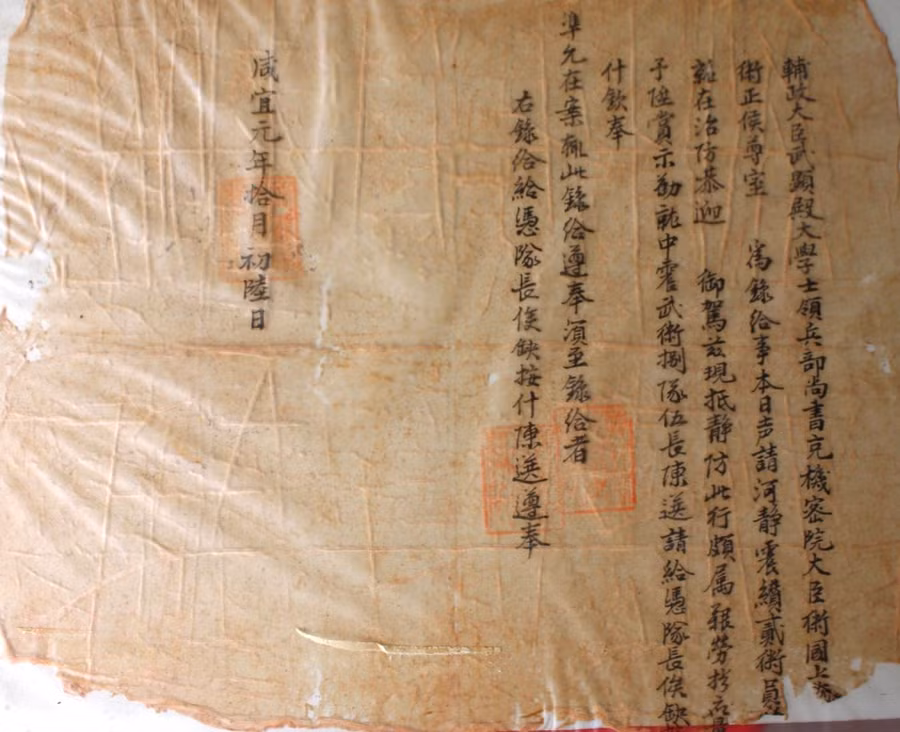 輔政大臣武顯殿大學士領兵部尚書充機密院大臣衛國上將
衛正侯尊室 為錄給事本日声請河靜震續貳衛員
就在治防恭迎 御駕兹現抵靜防此行頗属艱勞
予陞賞示勸就中霍武衛捌隊伍長陳送請給憑隊長俟缺
什欽奉
準允在案輒此錄給遵奉須至錄給者
右錄給給憑隊長俟缺按什陳送遵奉
咸宜元年拾月初陸日